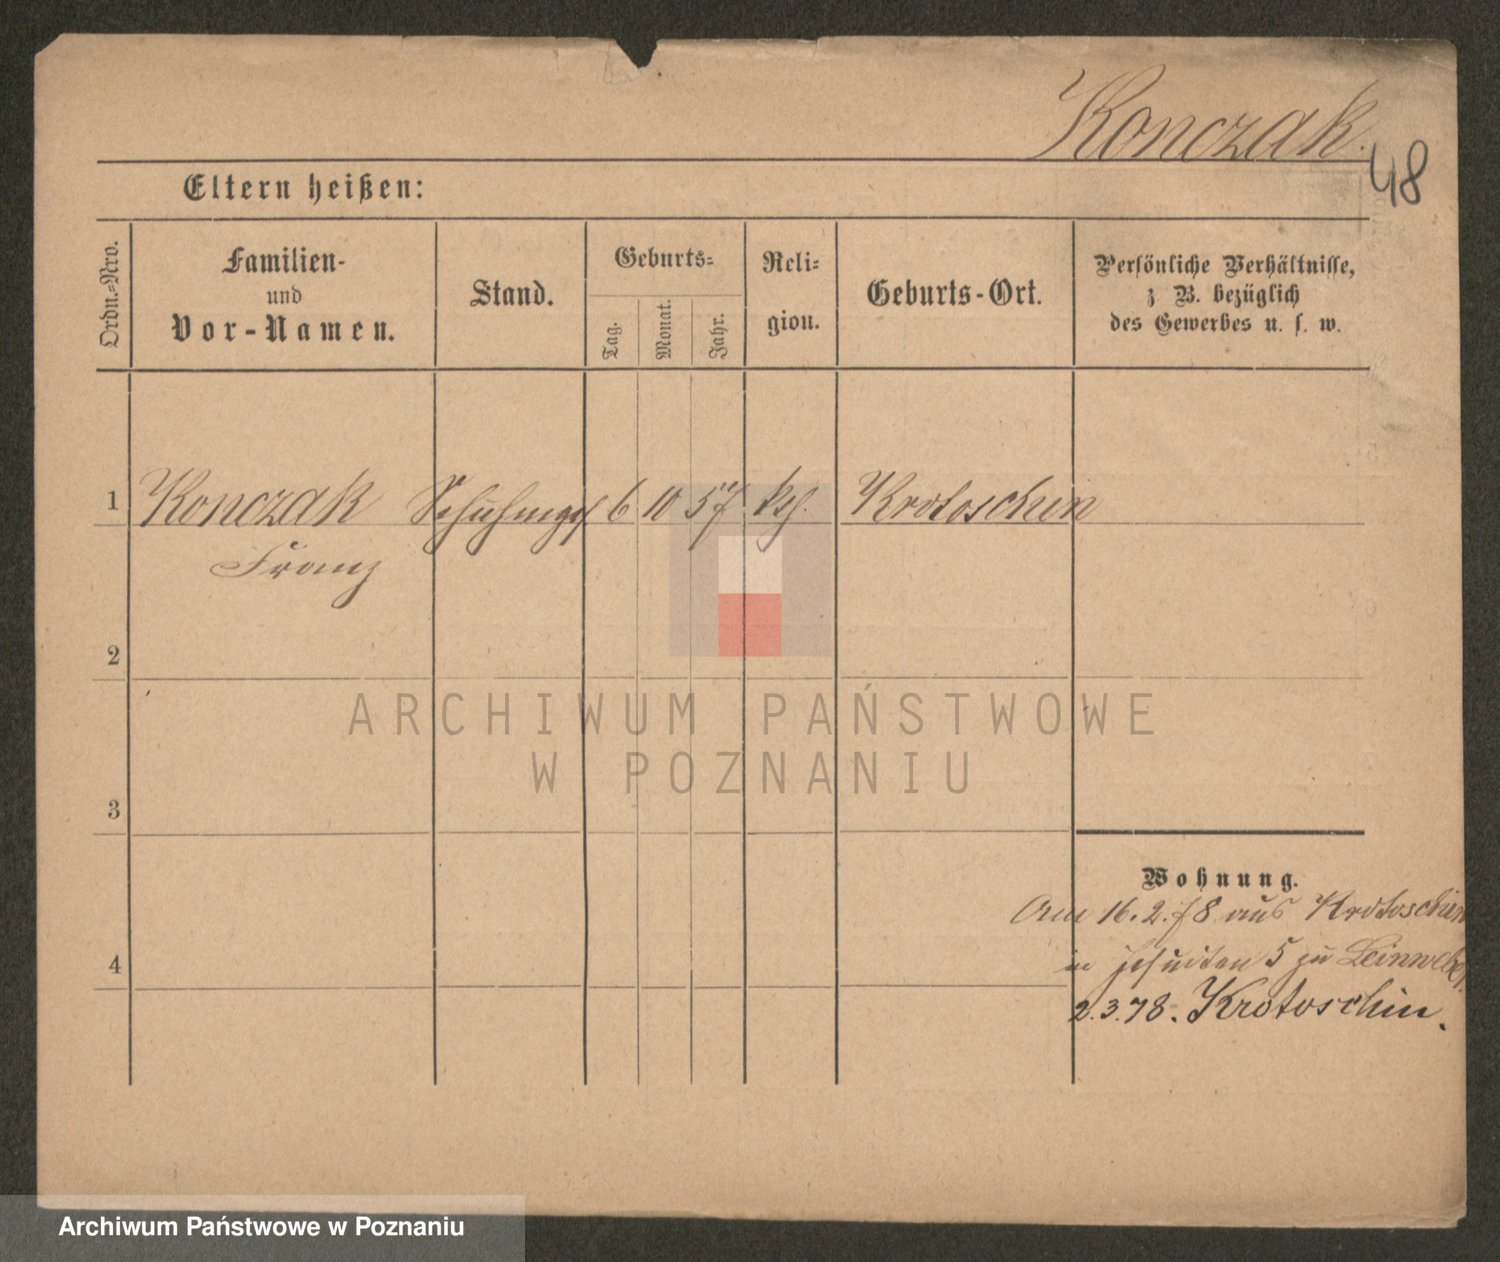 Konczak.
48
Eltern heißen:
Ordn.-Nro.
Familien-
und
Vor-Namen.
Stand.
Geburts-
Tag.
Monat.
Jahr.
Reli-
gion.
Geburts-Ort.
Persönliche Verhältnisse,
z B. bezüglich
des Gewerbes u. s. w.
1 Konczak Schuhmgs 6 10 57 kth. Krotoschin
Franz
2
3
4
Wohnung.
Am 16.2.78 aus Krotoschin
in Jesuiten 5 zu Leinweber
2.3.78. Krotoschin.
ARCHIWUM PAŃSTWOWE
W POZNANIU
Archiwum Państwowe w Poznaniu